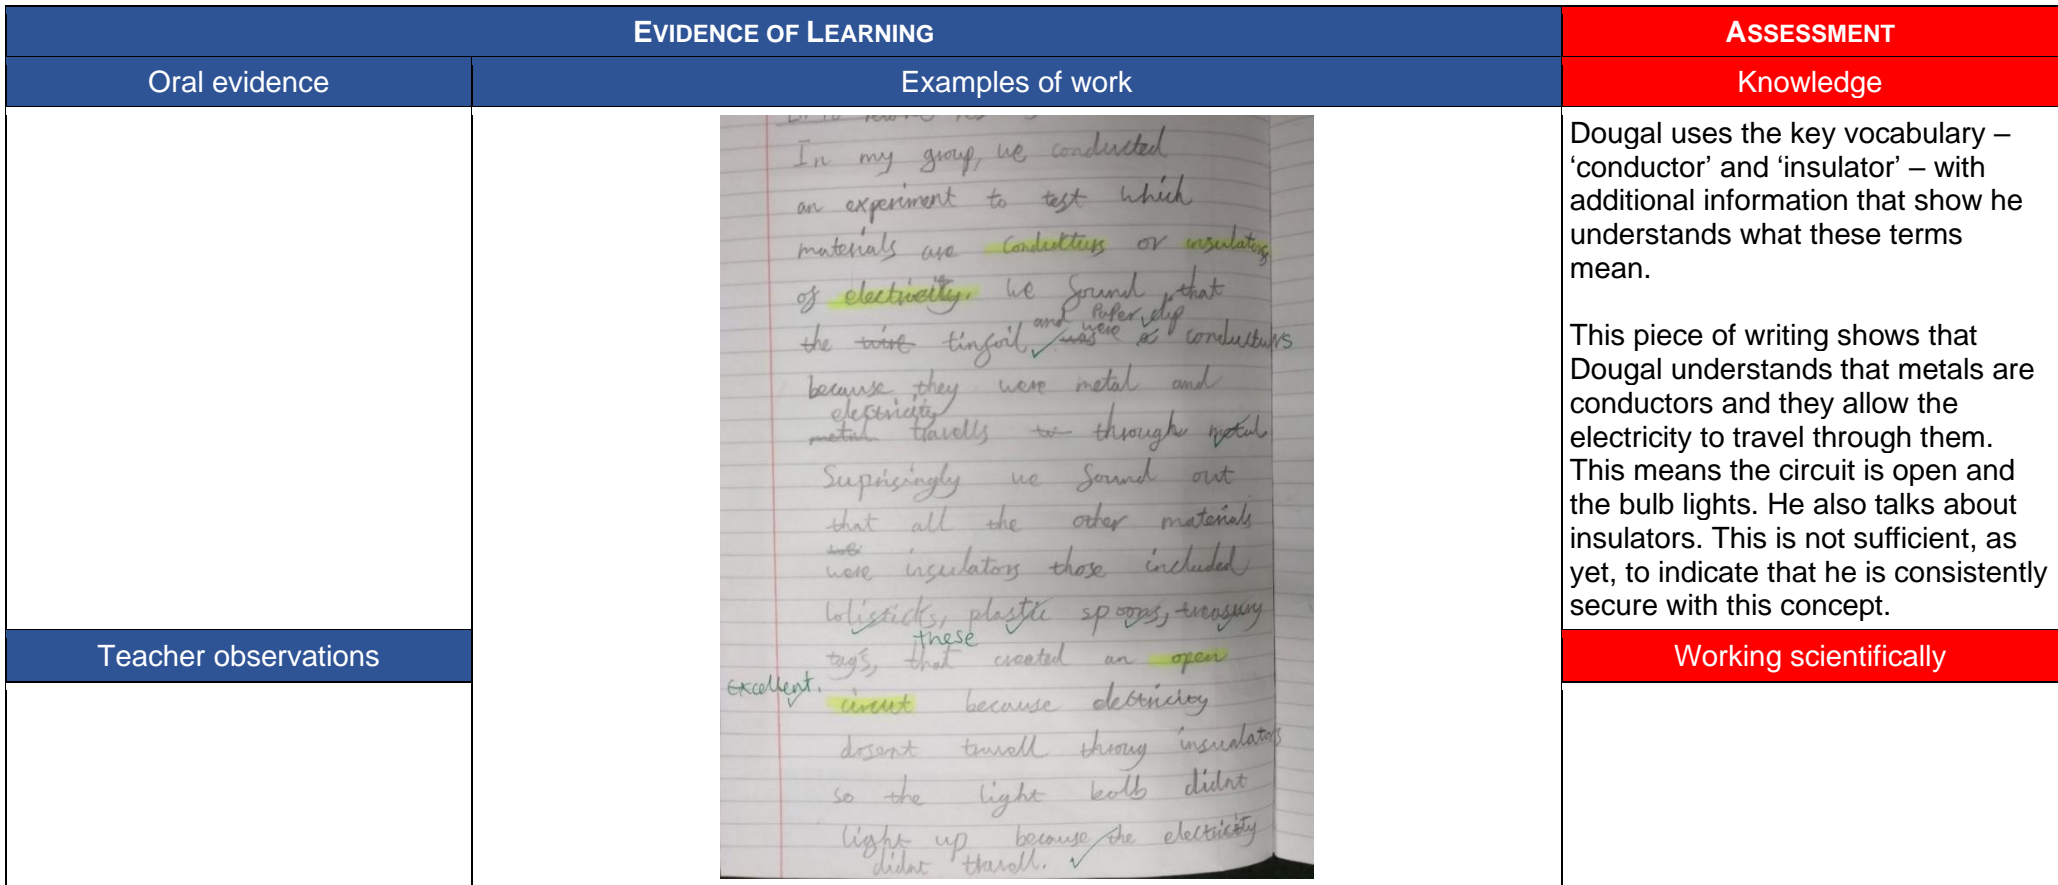 EVIDENCE OF LEARNING
ASSESSMENT
Oral evidence
Examples of work
Knowledge
In my group, we conducted
an experiment to test which
materials are conducturs or insulators
of electricity. We found that
and Paper clip
the wire tinfoil was were a conducturs
because they were metal and
electricity
metal travells to through metal
Suprisingly we found out
that all the other materials
were insulators those included
lolisticks, plastic spoons, treasury
these
tags, that created an open
Excellent.
circut because electricity
dosent travell throug insualators
so the light bolb didnt
light up because the electricity
didnt travell.
Dougal uses the key vocabulary –
‘conductor’ and ‘insulator’ – with
additional information that show he
understands what these terms
mean.
This piece of writing shows that
Dougal understands that metals are
conductors and they allow the
electricity to travel through them.
This means the circuit is open and
the bulb lights. He also talks about
insulators. This is not sufficient, as
yet, to indicate that he is consistently
secure with this concept.
Teacher observations
Working scientifically